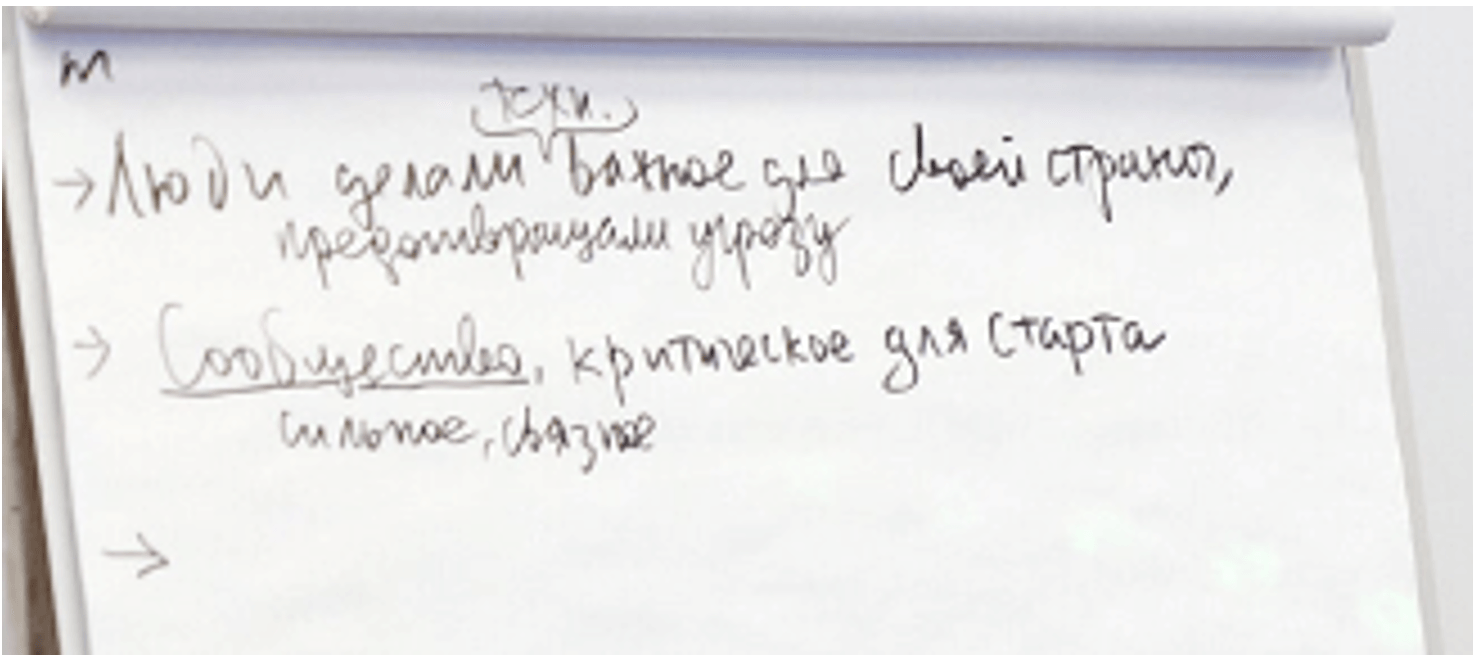 техн.
→ Люди делали важное для своей страны,
предотвращали угрозу
→ Сообщество, критическое для старта
сильное, связное
→